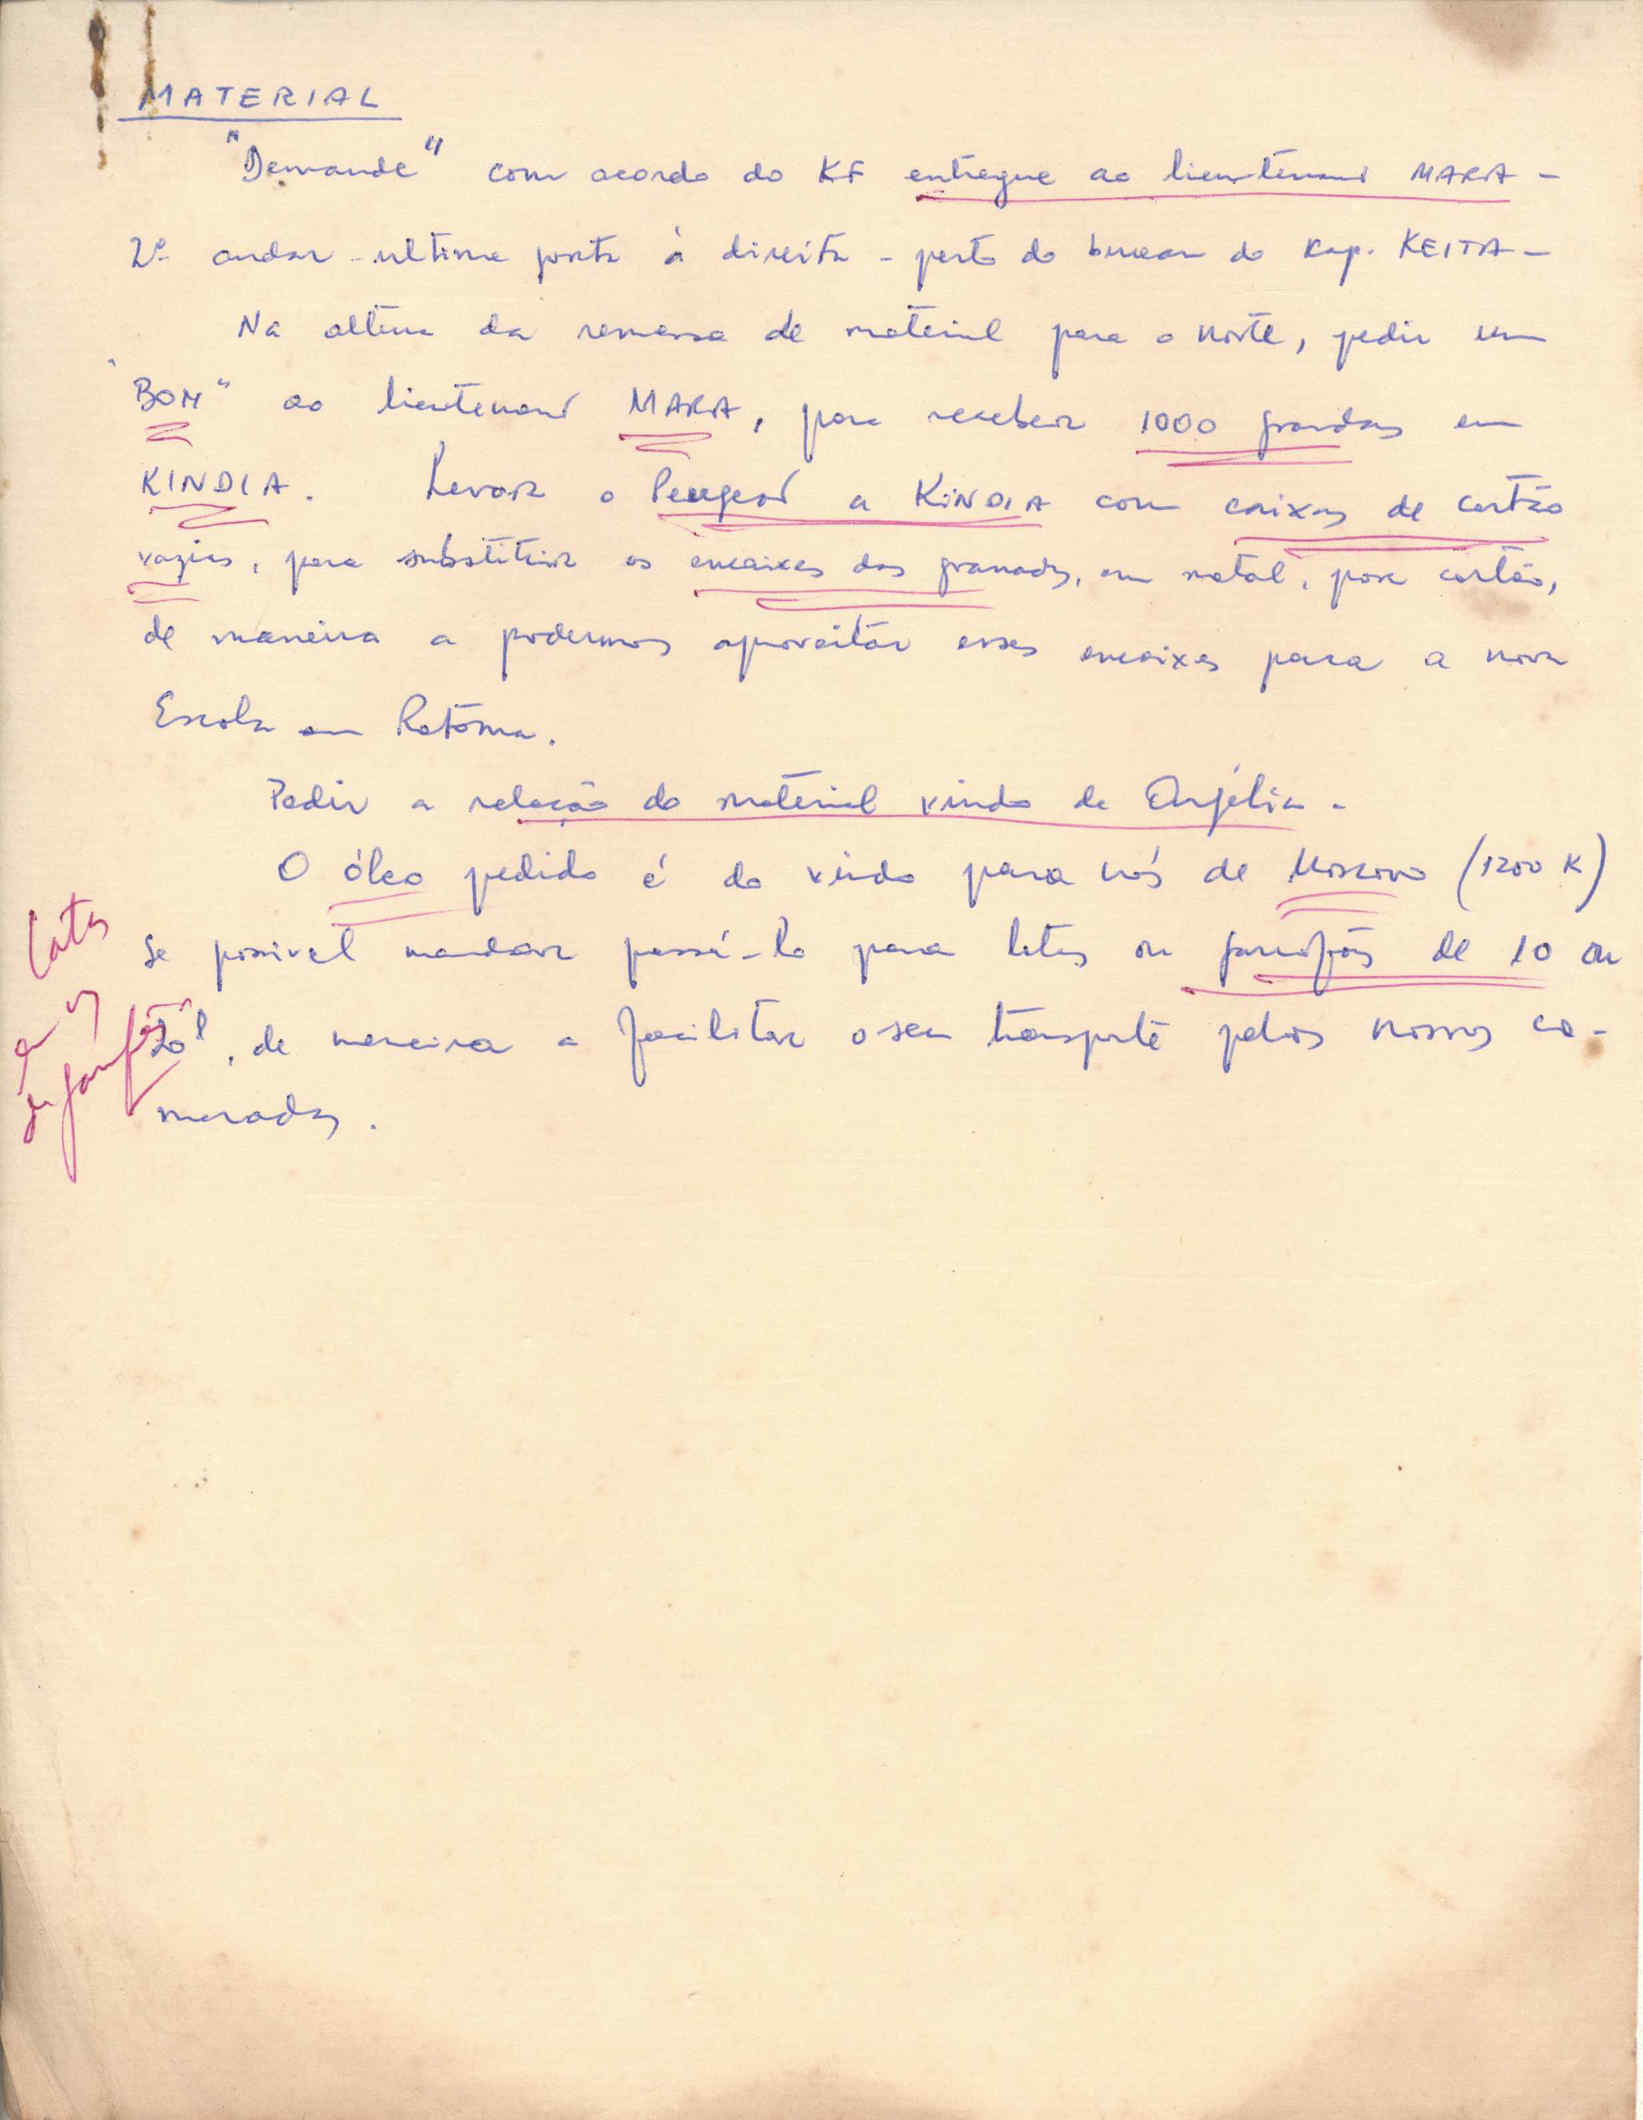 MATERIAL
"Demande" com acordo do KF entregue ao lieutenant MARA -
2º andar - ultima porta à direita - perto do bureau do Kap. KEITA -
Na altura da remessa de material para o norte, pedir um
"BON" ao lieutenant MARA, para receber 1000 granadas em
KINDIA. Levar o Peugeot a KINDIA com caixas de cartão
vazias, para substituir as encaixes das granadas, em metal, por cartão,
de maneira a podermos aproveitar esses encaixes para a nova
Escola em Ratoma.
Pedir a relação do material vindo de Argélia -
O óleo pedido é do vindo para nós de Moscovo (1200 K)
Se possivel mandar passá-lo para latas ou garrafões de 10 ou
20 l, de maneira a facilitar o seu transporte pelos nossos ca-
maradas.
Latas
ou
garrafões